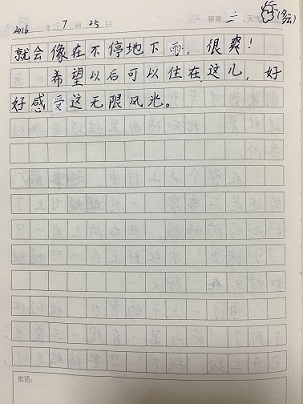 2016年7月25日 星期二 天气(多云)
就会像在不停地下雨，很爽！
希望以后可以住在这儿，好
好感受这无限风光。